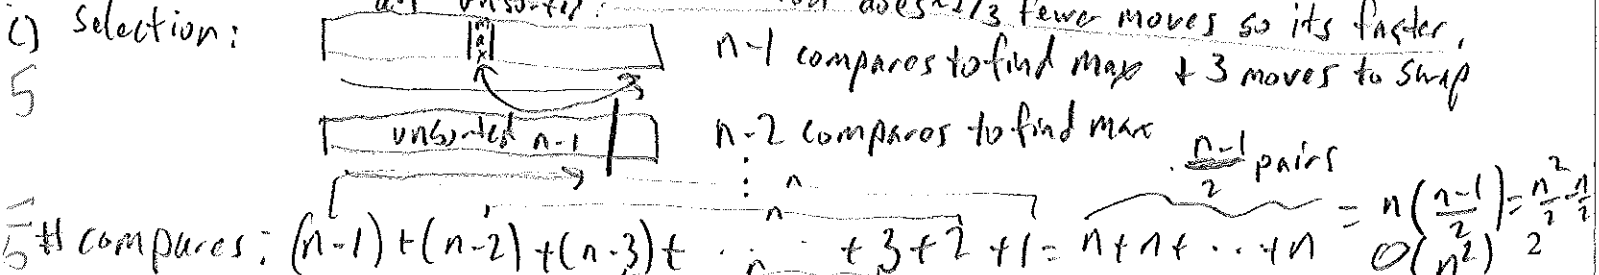 does ~2/3 fewer moves so its faster.
c) Selection: max n-1 compares to find max + 3 moves to swap
5
unsorted n-1 n-2 compares to find max
n-1/2 pairs
5 # compares: (n-1)+(n-2)+(n-3)+ ... +3+2+1 = n+n+...+n = n(n-1/2) = n²/2 - n/2
n n n O(n²)